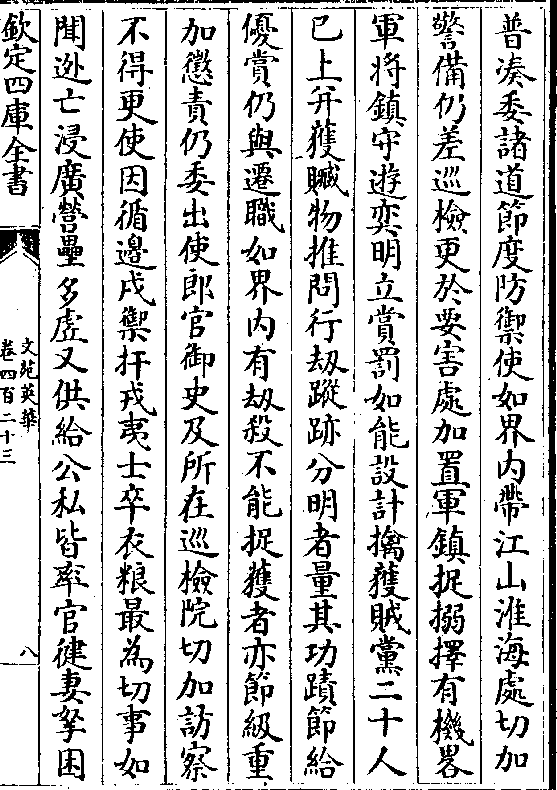 普湊委諸道節度防禦使如界内帶江山淮海處切加
警備仍差巡檢更於要害處加置軍鎮捉搦擇有機畧
軍將鎮守遊奕明立賞罰如能設計擒獲賊黨二十人
已上并獲贓物推問行刼蹤跡分明者量其功蹟節給
優賞仍與遷職如界内有刼殺不能捉獲者亦節級重
加懲責仍委出使郎官御史及所在巡檢院切加訪察
不得更使因循邊戍禦扞戎夷士卒衣粮最為切事如
聞逊亡浸廣營壘多虗又供給公私皆率官健妻孥困
欽定四庫全書
文苑英華
卷四百二十三
八